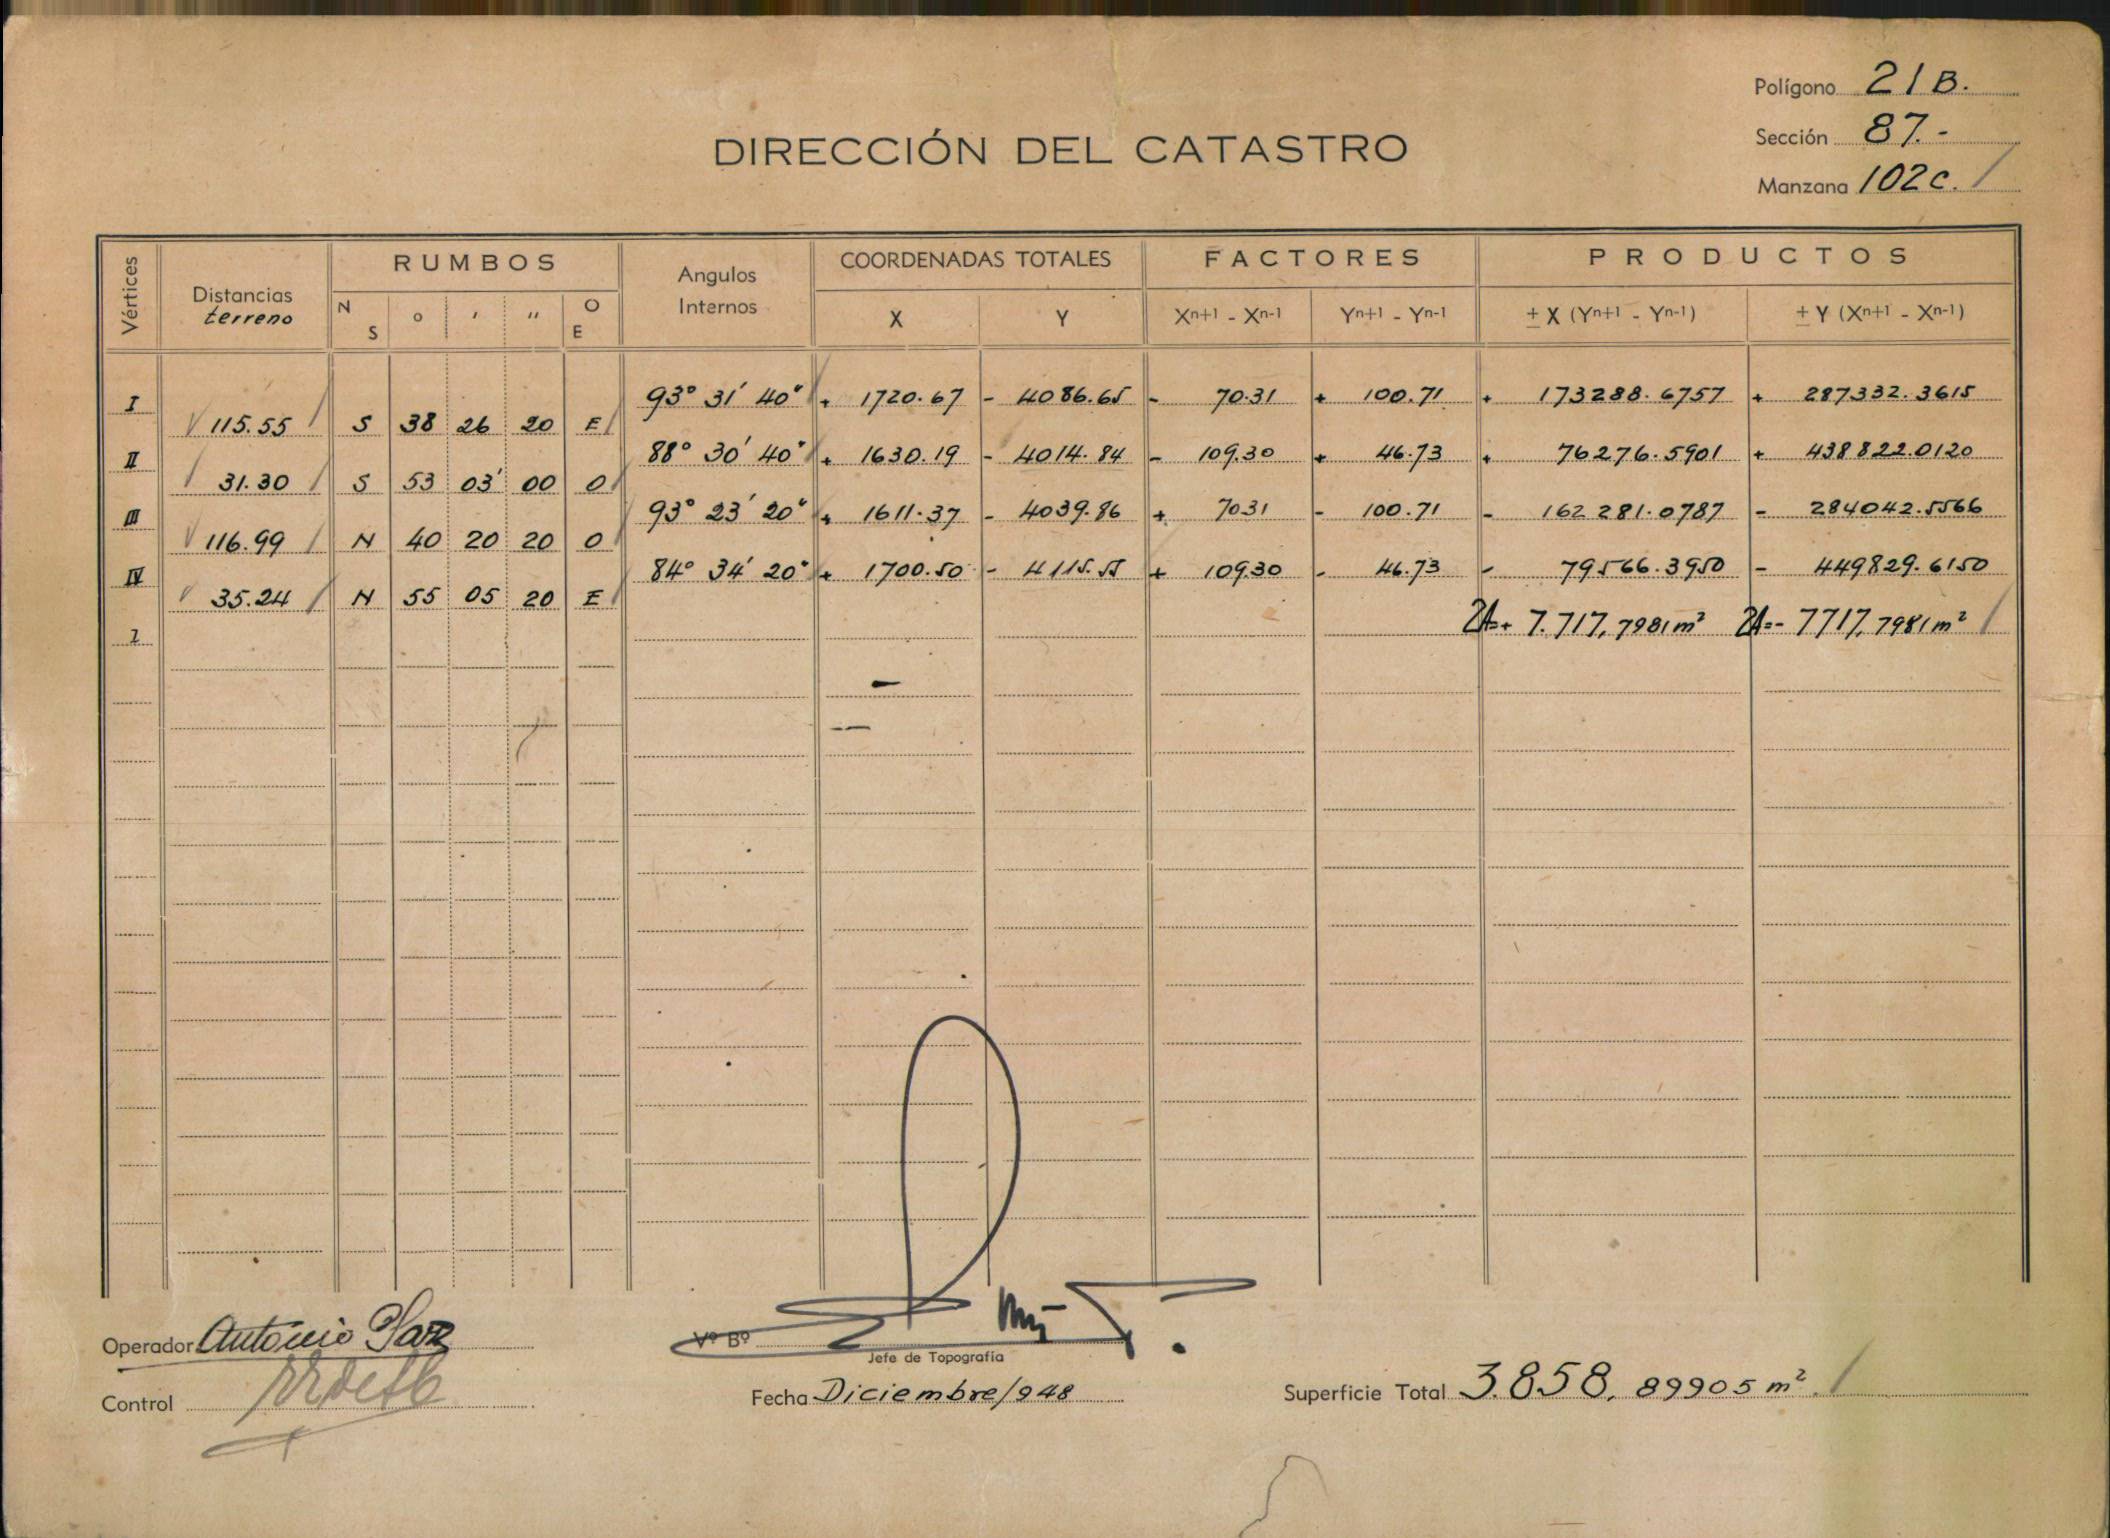 Polígono 21B.
Sección 87.-
Manzana 102c.
DIRECCIÓN DEL CATASTRO
Vértices Distancias terreno RUMBOS Angulos Internos COORDENADAS TOTALES FACTORES PRODUCTOS
N S ° ' '' O E X Y Xn+1 - Xn-1 Yn+1 - Yn-1 ± X (Yn+1 - Yn-1) ± Y (Xn+1 - Xn-1)
I 93° 31' 40" + 1720.67 - 4086.65 - 70.31 + 100.71 + 173288.6757 + 287332.3615
115.55 S 38 26 20 E
II 88° 30' 40" + 1630.19 - 4014.84 - 109.30 + 46.73 + 76276.5901 + 438822.0120
31.30 S 53 03' 00 O
III 93° 23' 20" + 1611.37 - 4039.86 + 7031 - 100.71 - 162281.0787 - 284042.5566
116.99 N 40 20 20 O
IV 84° 34' 20" + 1700.50 - 4115.55 + 109.30 - 46.73 - 79566.3950 - 449829.6150
35.24 N 55 05 20 E
1 2A=+ 7.717,7981m² 2A=- 7717,7981m²
Operador Antonio
Vº Bº
Jefe de Topografía
Control
Fecha Diciembre/948
Superficie Total 3.858,89905 m²